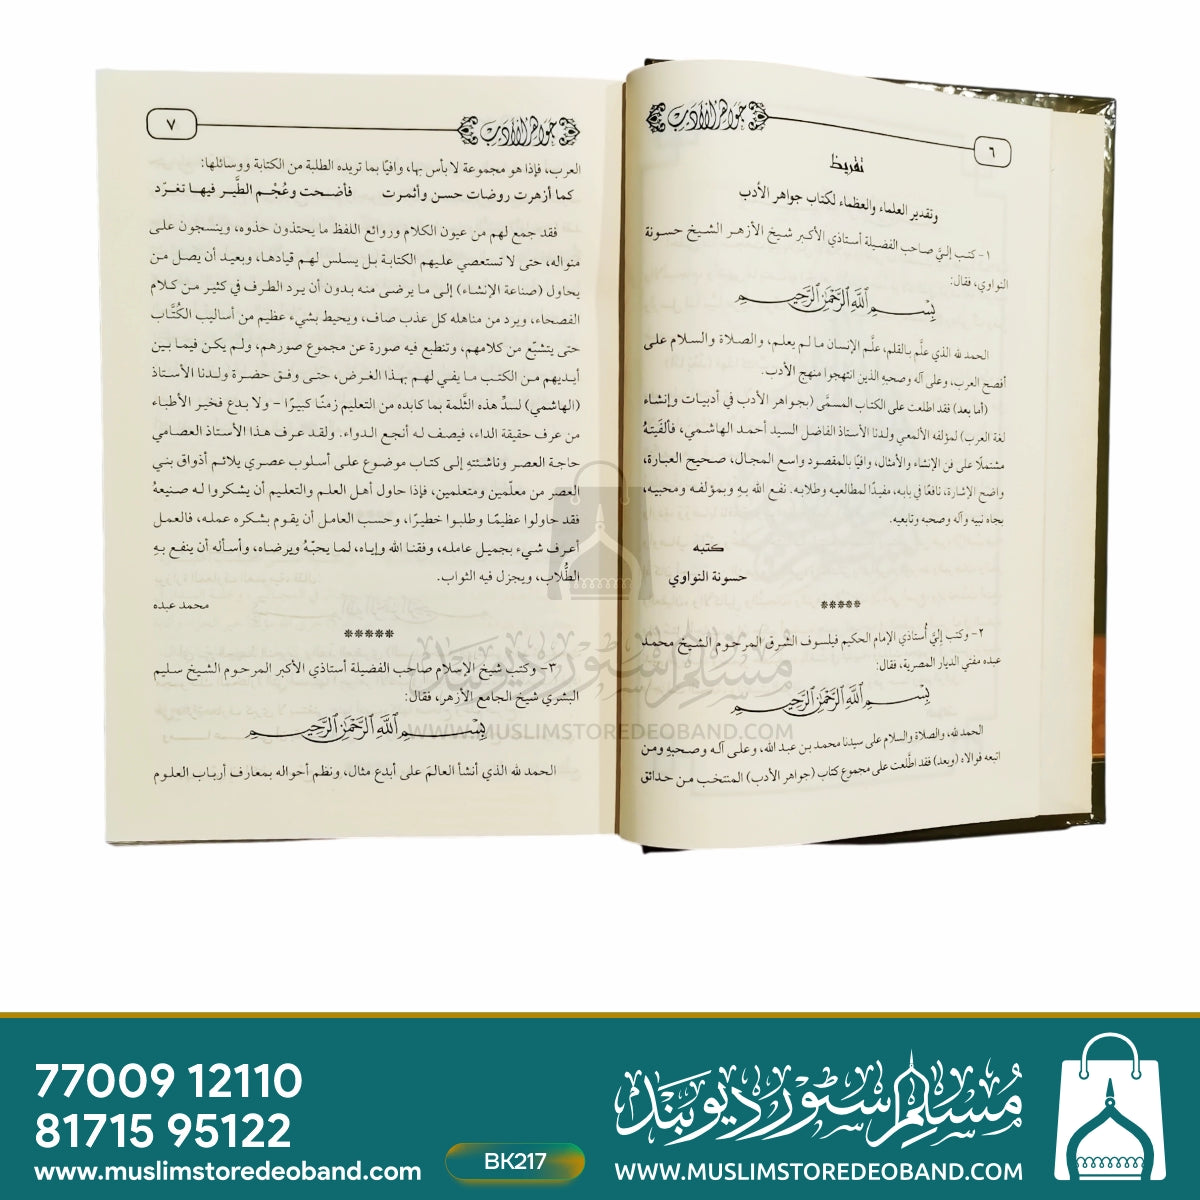 جواهر الأدب
٦
تقريظ
وتقدير العلماء والعظماء لكتاب جواهر الأدب
١- كتب إليَّ صاحب الفضيلة أستاذي الأكبر شيخ الأزهر الشيخ حسونة
النواوي، فقال:
بسم الله الرحمن الرحيم
الحمد لله الذي علَّم بالقلم، علَّم الإنسان ما لم يعلم، والصلاة والسلام على
أفصح العرب، وعلى آله وصحبه الذين انتهجوا منهج الأدب.
(أما بعد) فقد اطلعت على الكتاب المسمَّى (بجواهر الأدب في أدبيات وإنشاء
لغة العرب) لمؤلفه الألمعي ولدنا الأستاذ الفاضل السيد أحمد الهاشمي، فألفَيتهُ
مشتملًا على فن الإنشاء والأمثال، وافيًا بالمقصود واسع المجال، صحيح العبارة،
واضح الإشارة، نافعًا في بابه، مفيدًا لمطالعيه وطلابه. نفع الله بهِ وبمؤلفه ومحبيه،
بجاه نبيه وآله وصحبه وتابعيه.
كتبه
حسونة النواوي
*****
٢- وكتب إليَّ أُستاذي الإمام الحكيم فيلسوف الشرق المرحوم الشيخ محمد
عبده مفتي الديار المصرية، فقال:
بسم الله الرحمن الرحيم
الحمد لله، والصلاة والسلام على سيدنا محمد بن عبد الله، وعلى آله وصحبهِ ومن
اتبعه فوالاه (وبعد) فقد اطَّلعت على مجموع كتاب (جواهر الأدب) المنتخب من حدائق
جواهر الأدب
٧
العرب، فإذا هو مجموعة لا بأس بها، وافيًا بما تريده الطلبة من الكتابة ووسائلها:
كما أزهرت روضات حسن وأثمرت فأضحت وعُجْم الطَّير فيها تغرّد
فقد جمع لهم من عيون الكلام وروائع اللفظ ما يحتذون حذوه، وينسجون على
منواله، حتى لا تستعصي عليهم الكتابة بل يسلس لهم قيادها، وبعيد أن يصل من
يحاول (صناعة الإنشاء) إلى ما يرضى منه بدون أن يرد الطرف في كثير من كلام
الفصحاء، ويرد من مناهله كل عذب صاف، ويحيط بشيء عظيم من أساليب الكُتَّاب
حتى يتشبّع من كلامهم، وتنطبع فيه صورة عن مجموع صورهم، ولم يكن فيما بين
أيديهم من الكتب ما يفي لهم بهذا الغرض، حتى وفق حضرة ولدنا الأستاذ
(الهاشمي) لسدِّ هذه الثَّلمة بما كابده من التعليم زمنًا كبيرًا - ولا بدع فخير الأطباء
من عرف حقيقة الداء، فيصف له أنجع الدواء. ولقد عرف هذا الأستاذ العصامي
حاجة العصر وناشئتهِ إلى كتاب موضوع على أسلوب عصري يلائم أذواق بني
العصر من معلّمين ومتعلمين، فإذا حاول أهل العلم والتعليم أن يشكروا له صنيعهُ
فقد حاولوا عظيمًا وطلبوا خطيرًا، وحسب العامل أن يقوم بشكره عمله، فالعمل
أعرف شيء بجميل عامله، وفقنا الله وإياه، لما يحبّهُ ويرضاه، وأسأله أن ينفع بهِ
الطُّلاب، ويجزل فيه الثواب.
محمد عبده
*****
٣- وكتب شيخ الإسلام صاحب الفضيلة أستاذي الأكبر المرحوم الشيخ سليم
البشري شيخ الجامع الأزهر، فقال:
بسم الله الرحمن الرحيم
الحمد لله الذي أنشأ العالمَ على أبدع مثال، ونظم أحواله بمعارف أرباب العلوم
مسلم سٹور دیوبند
WWW.MUSLIMSTOREDEOBAND.COM
77009 12110
81715 95122
www.muslimstoredeoband.com
BK217
مسلم سٹور دیوبند
WWW.MUSLIMSTOREDEOBAND.COM